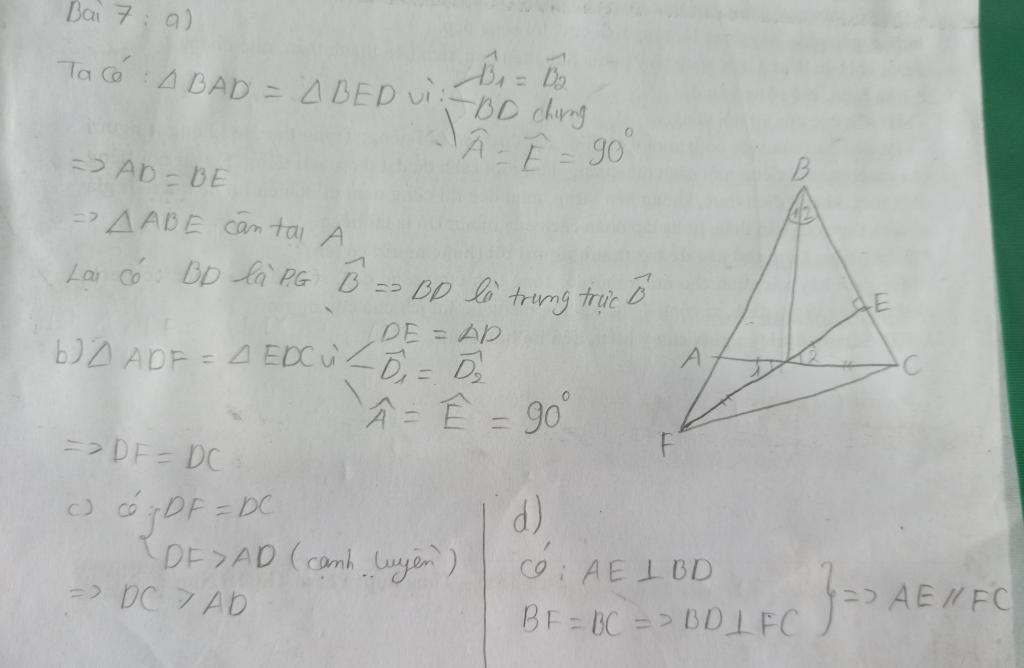 Bài 7: a)
Ta có: △BAD = △BED vì: B̂1 = B̂2
BD chung
Â = Ê = 90°
=> AD = BE
=> △ABE cân tại A
Lại có: BD là PG B̂ => BD là trung trực B̂
b) △ADF = △EDC vì DE = AD
D̂1 = D̂2
Â = Ê = 90°
=> DF = DC
c) có DF = DC
DF > AD (cạnh luyền)
=> DC > AD
d)
Có: AE ⊥ BD
BF = BC => BD ⊥ FC
=> AE // FC
B
1 2
E
A
1
2
C
F